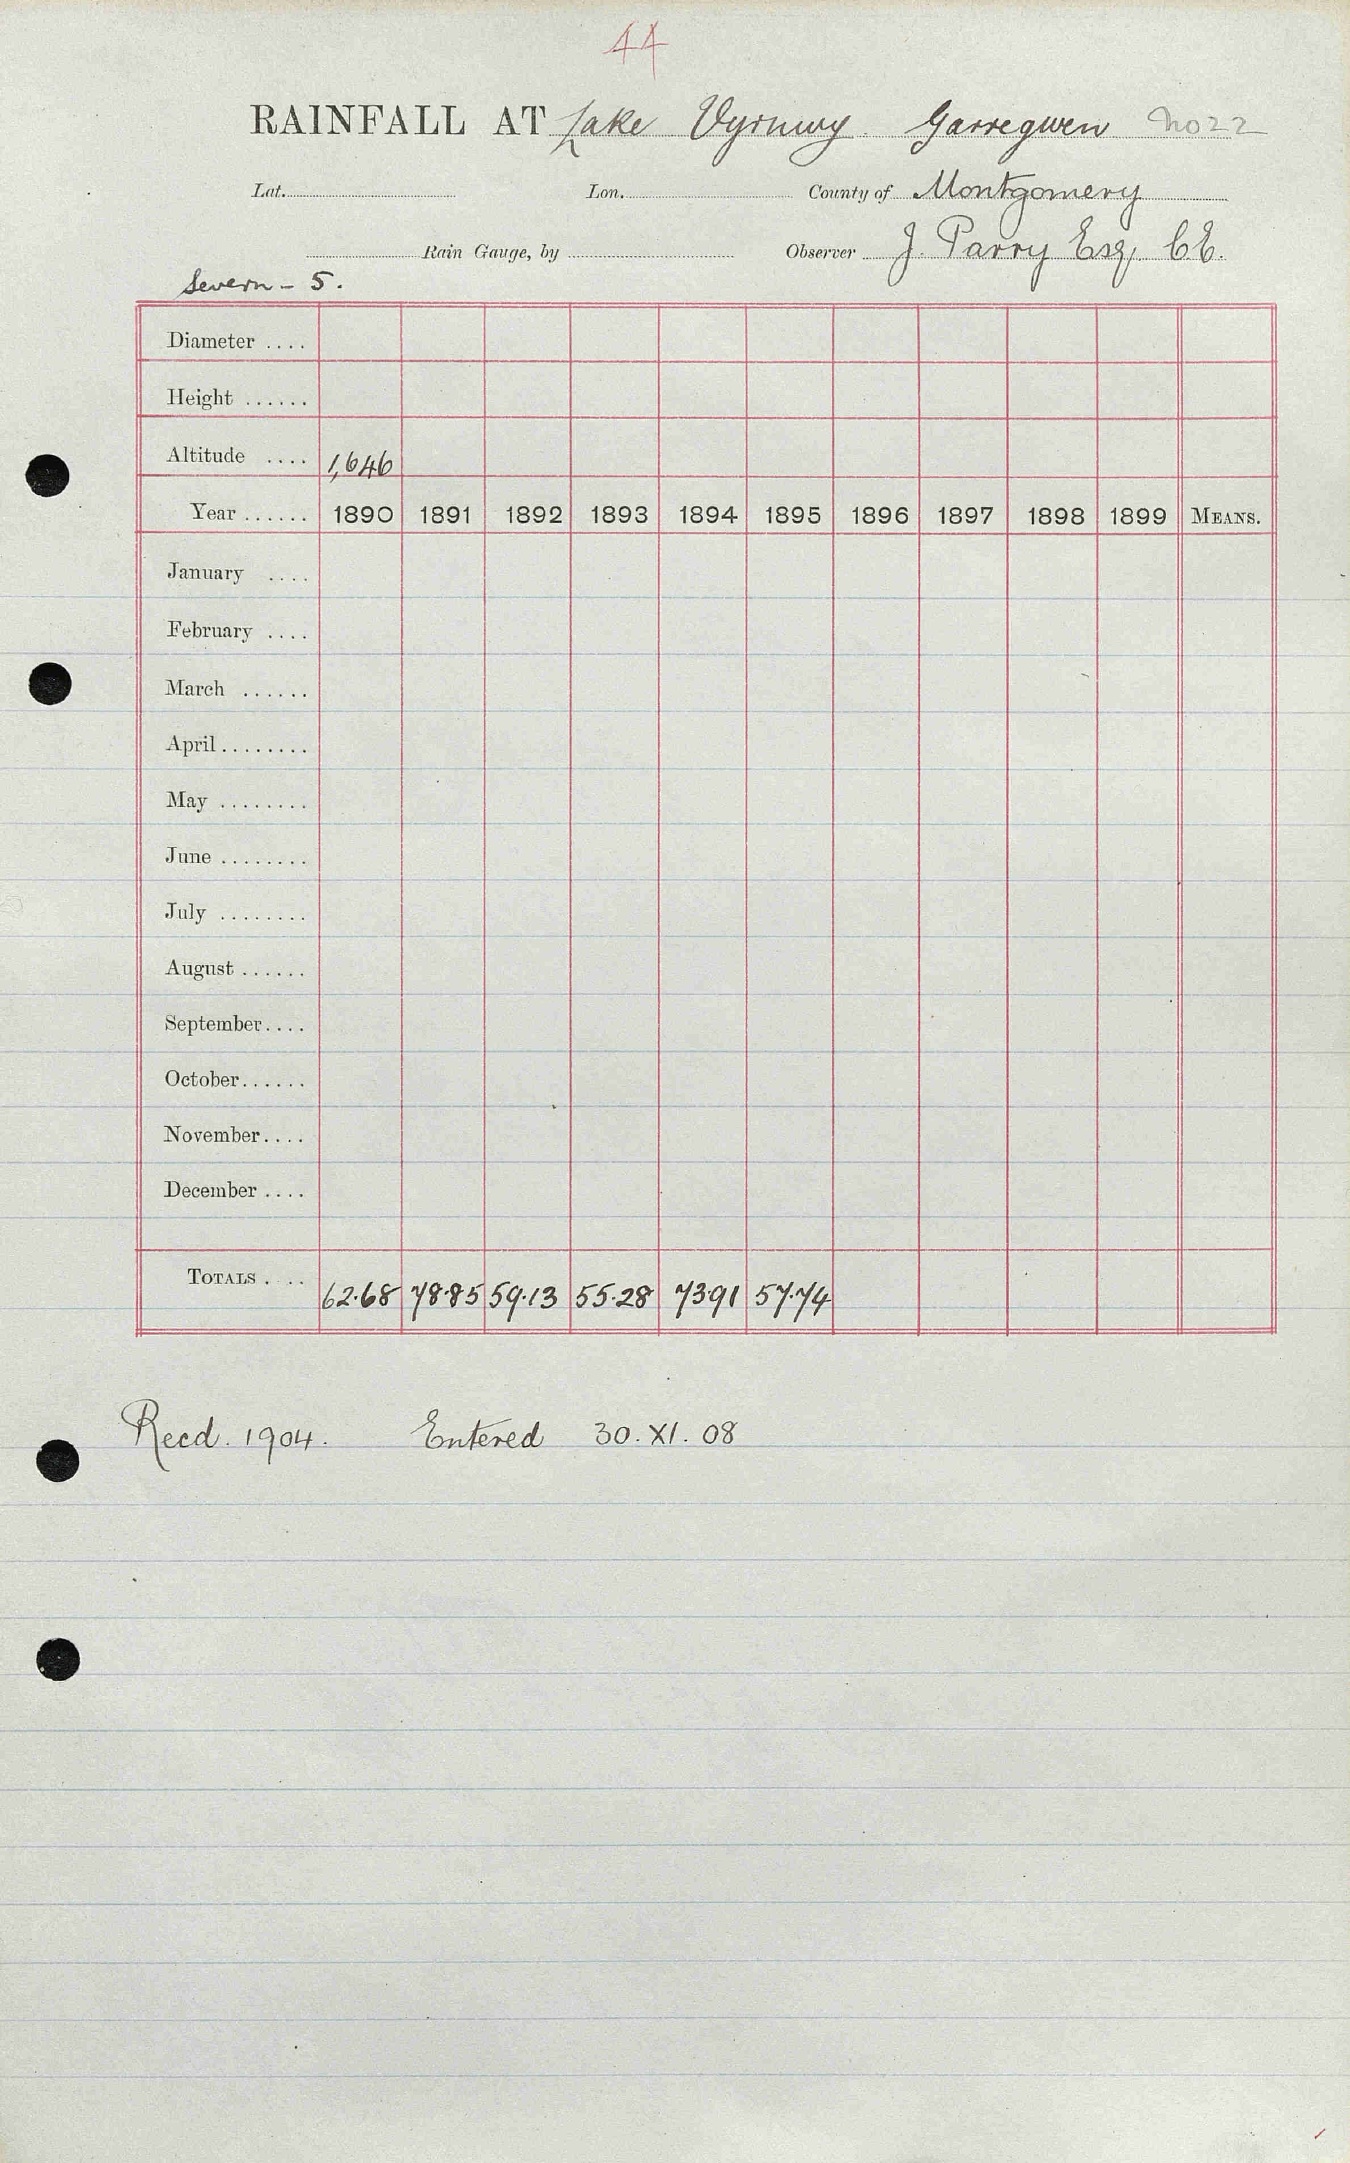 44
RAINFALL AT Lake Vyrnwy. Garregwen No 22
Lat. Lon. County of Montgomery
Rain Gauge, by Observer J. Parry Esq. C.E.
Severn - 5.
Diameter ....
Height ......
Altitude .... 1,646
Year ...... 1890 1891 1892 1893 1894 1895 1896 1897 1898 1899 MEANS.
January ....
February ....
March ......
April ........
May ........
June ........
July ........
August ......
September ....
October ......
November ....
December ....
TOTALS .... 62.68 78.85 59.13 55.28 73.91 57.74
Recd. 1904. Entered 30. XI. 08